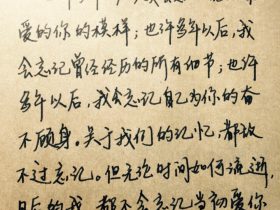 爱的你的模样；也许多年以后，我
会忘记曾经经历的所有细节；也许
多年以后，我会忘记自己为你的奋
不顾身。关于我们的记忆，都敌
不过忘记。但无论时间如何流逝，
日后的我，都不会忘记当初爱你